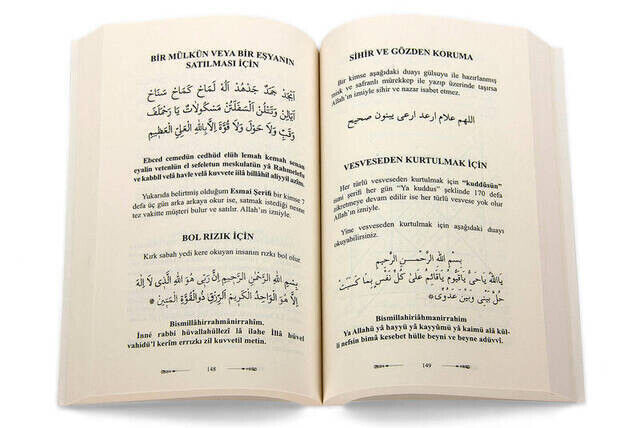 BİR MÜLKÜN VEYA BİR EŞYANIN
SATILMASI İÇİN
اَبْجَدْ جَمَدٌ جَدْهُدْ اَلهُ لَمَاحٍ كَمَاحٍ سَتَاحٍ
اَيَالِنْ وَتَتَلُنْ السَّفَلَتْنْ مَسْكُولَاتٌ يَا رَحْمَلَفْ
وَقَبٍ وَلَا حَوْلَ وَلَا قُوَّةَ اِلَّا بِاللّٰهِ الْعَلِيِّ الْعَظِيمِ
Ebced cemedün cedhüd elüh lemah kemah semam
eyalin vetenlün el sefeletun meskulatün yâ Rahmelefu
ve kabbil velâ havle velâ kuvvete illâ billâhil aliyyil azîm.
Yukarıda belirtmiş olduğum Esmai Şerifi bir kimse 7
defa üç gün arka arkaya okur ise, satmak istediği nesne
tez vakitte müşteri bulur ve satılır. Allah'ın izniyle.
BOL RIZIK İÇİN
Kırk sabah yedi kere okuyan insanın rızkı bol olur.
بِسْمِ اللّٰهِ الرَّحْمٰنِ الرَّحِيمِ اِنَّ رَبّى هُوَ اللّٰهُ الَّذى لَا اِلٰهَ
اِلَّا هُوَ الْوَاحِدُ الْكَرِيمُ الرِّزْقِ ذُوالْقُوَّةِ الْمَتِينُ
Bismillâhirrahmânirrahim.
İnné rabbi hüvallahüllezî lâ ilahe İllâ hüvel
vahidü'l kerîm errızkı zil kuvvetil metin.
148
SİHİR VE GÖZDEN KORUMA
Bir kimse aşağıdaki duayı gülsuyu ile hazırlanmış
misk ve safranlı mürekkep ile yazıp üzerinde taşırsa
Allah'ın izniyle sihir ve nazar isabet etmez.
اللهم علام ارعد ارعى يبنون صحيح
VESVESEDEN KURTULMAK İÇİN
Her türlü vesveseden kurtulmak için “kuddûsün”
ismi şerifi her gün “Ya kuddus” şeklinde 170 defa
zikretmeye devam edilir ise her türlü vesvese yok olur
Allah'ın izniyle.
Yine vesveseden kurtulmak için aşağıdaki duayı
okuyabilirsiniz.
بِسْمِ اللّٰهِ الرَّحْمٰنِ الرَّحِيمِ
يَااَللّٰهُ يَاحَىُّ يَاقَيُّومُ يَاقَائِمُ عَلٰى كُلِّ نَفْسٍ بِمَا كَسَبَتْ
حُلْ بَيْنى وَبَيْنَ عَدُوّى
Bismillahirîahmanirrahim
Ya Allahü yâ hayyü yâ kayyûmü yâ kaimü alâ kül-
li nefsin bimâ kesebet hülle beyni ve beyne adüvvî.
149